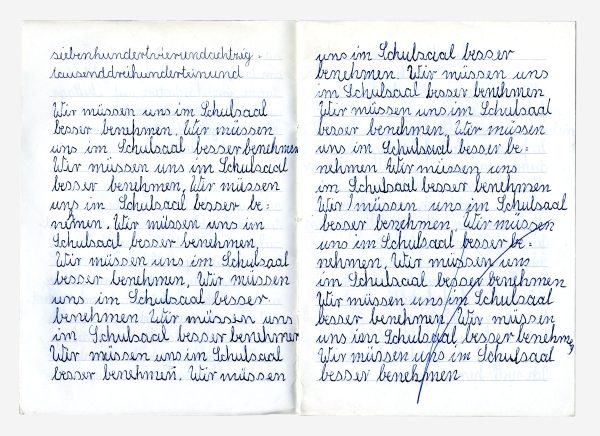 siebenhundertvierundachtzig-
tausenddreihunderteinund
Wir müssen uns im Schulsaal
besser benehmen. Wir müssen
uns im Schulsaal besser benehmen
Wir müssen uns im Schulsaal
besser benehmen, Wir müssen
uns im Schulsaal besser be=
nehmen. Wir müssen uns im
Schulsaal besser benehmen,
Wir müssen uns im Schulsaal
besser benehmen, Wir müssen
uns im Schulsaal besser
benehmen Wir müssen uns
im Schulsaal besser benehmen
Wir müssen uns im Schulsaal
besser benehmen. Wir müssen
uns im Schulsaal besser
benehmen Wir müssen uns
im Schulsaal besser benehmen
Wir müssen uns im Schulsaal
besser benehmen, Wir müssen
uns im Schulsaal besser be=
nehmen Wir müssen uns
im Schulsaal besser benehmen
Wir müssen uns im Schulsaal
besser benehmen, Wir müssen
uns im Schulsaal besser be=
nehmen, Wir müssen uns
im Schulsaal besser benehmen
Wir müssen uns im Schulsaal
besser benehmen, Wir müssen
uns im Schulsaal besser benehmen
Wir müssen uns im Schulsaal
besser benehmen